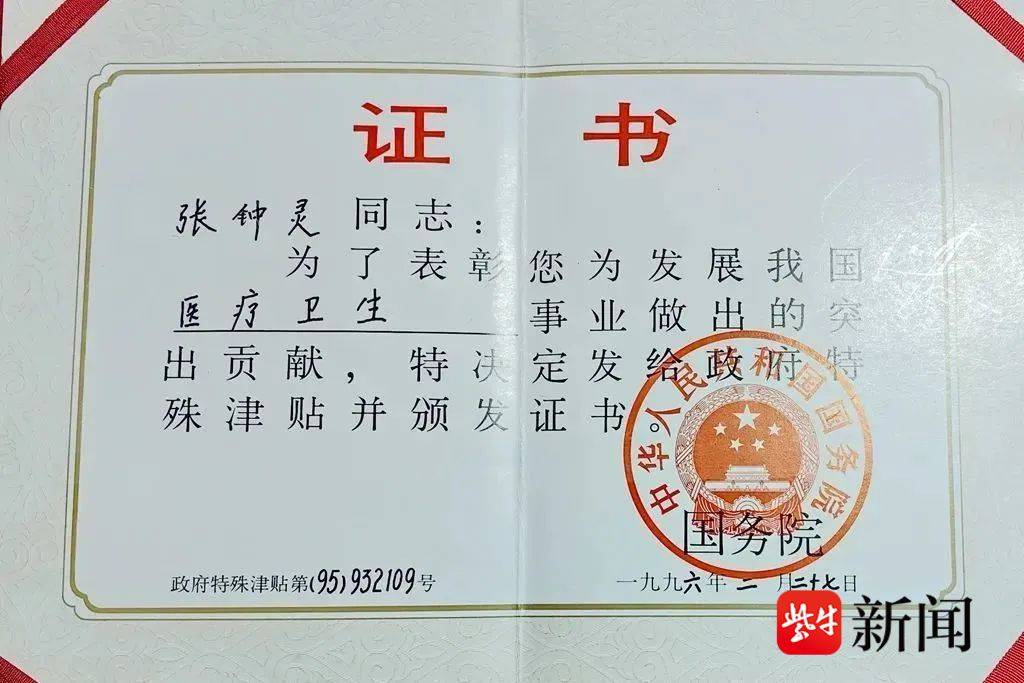 证书
张钟灵同志：
为了表彰您为发展我国
医疗卫生事业做出的突
出贡献，特决定发给政府特
殊津贴并颁发证书。
中华人民共和国国务院
国务院
政府特殊津贴第(95)932109号
一九九六年二月二十七日
紫牛新闻